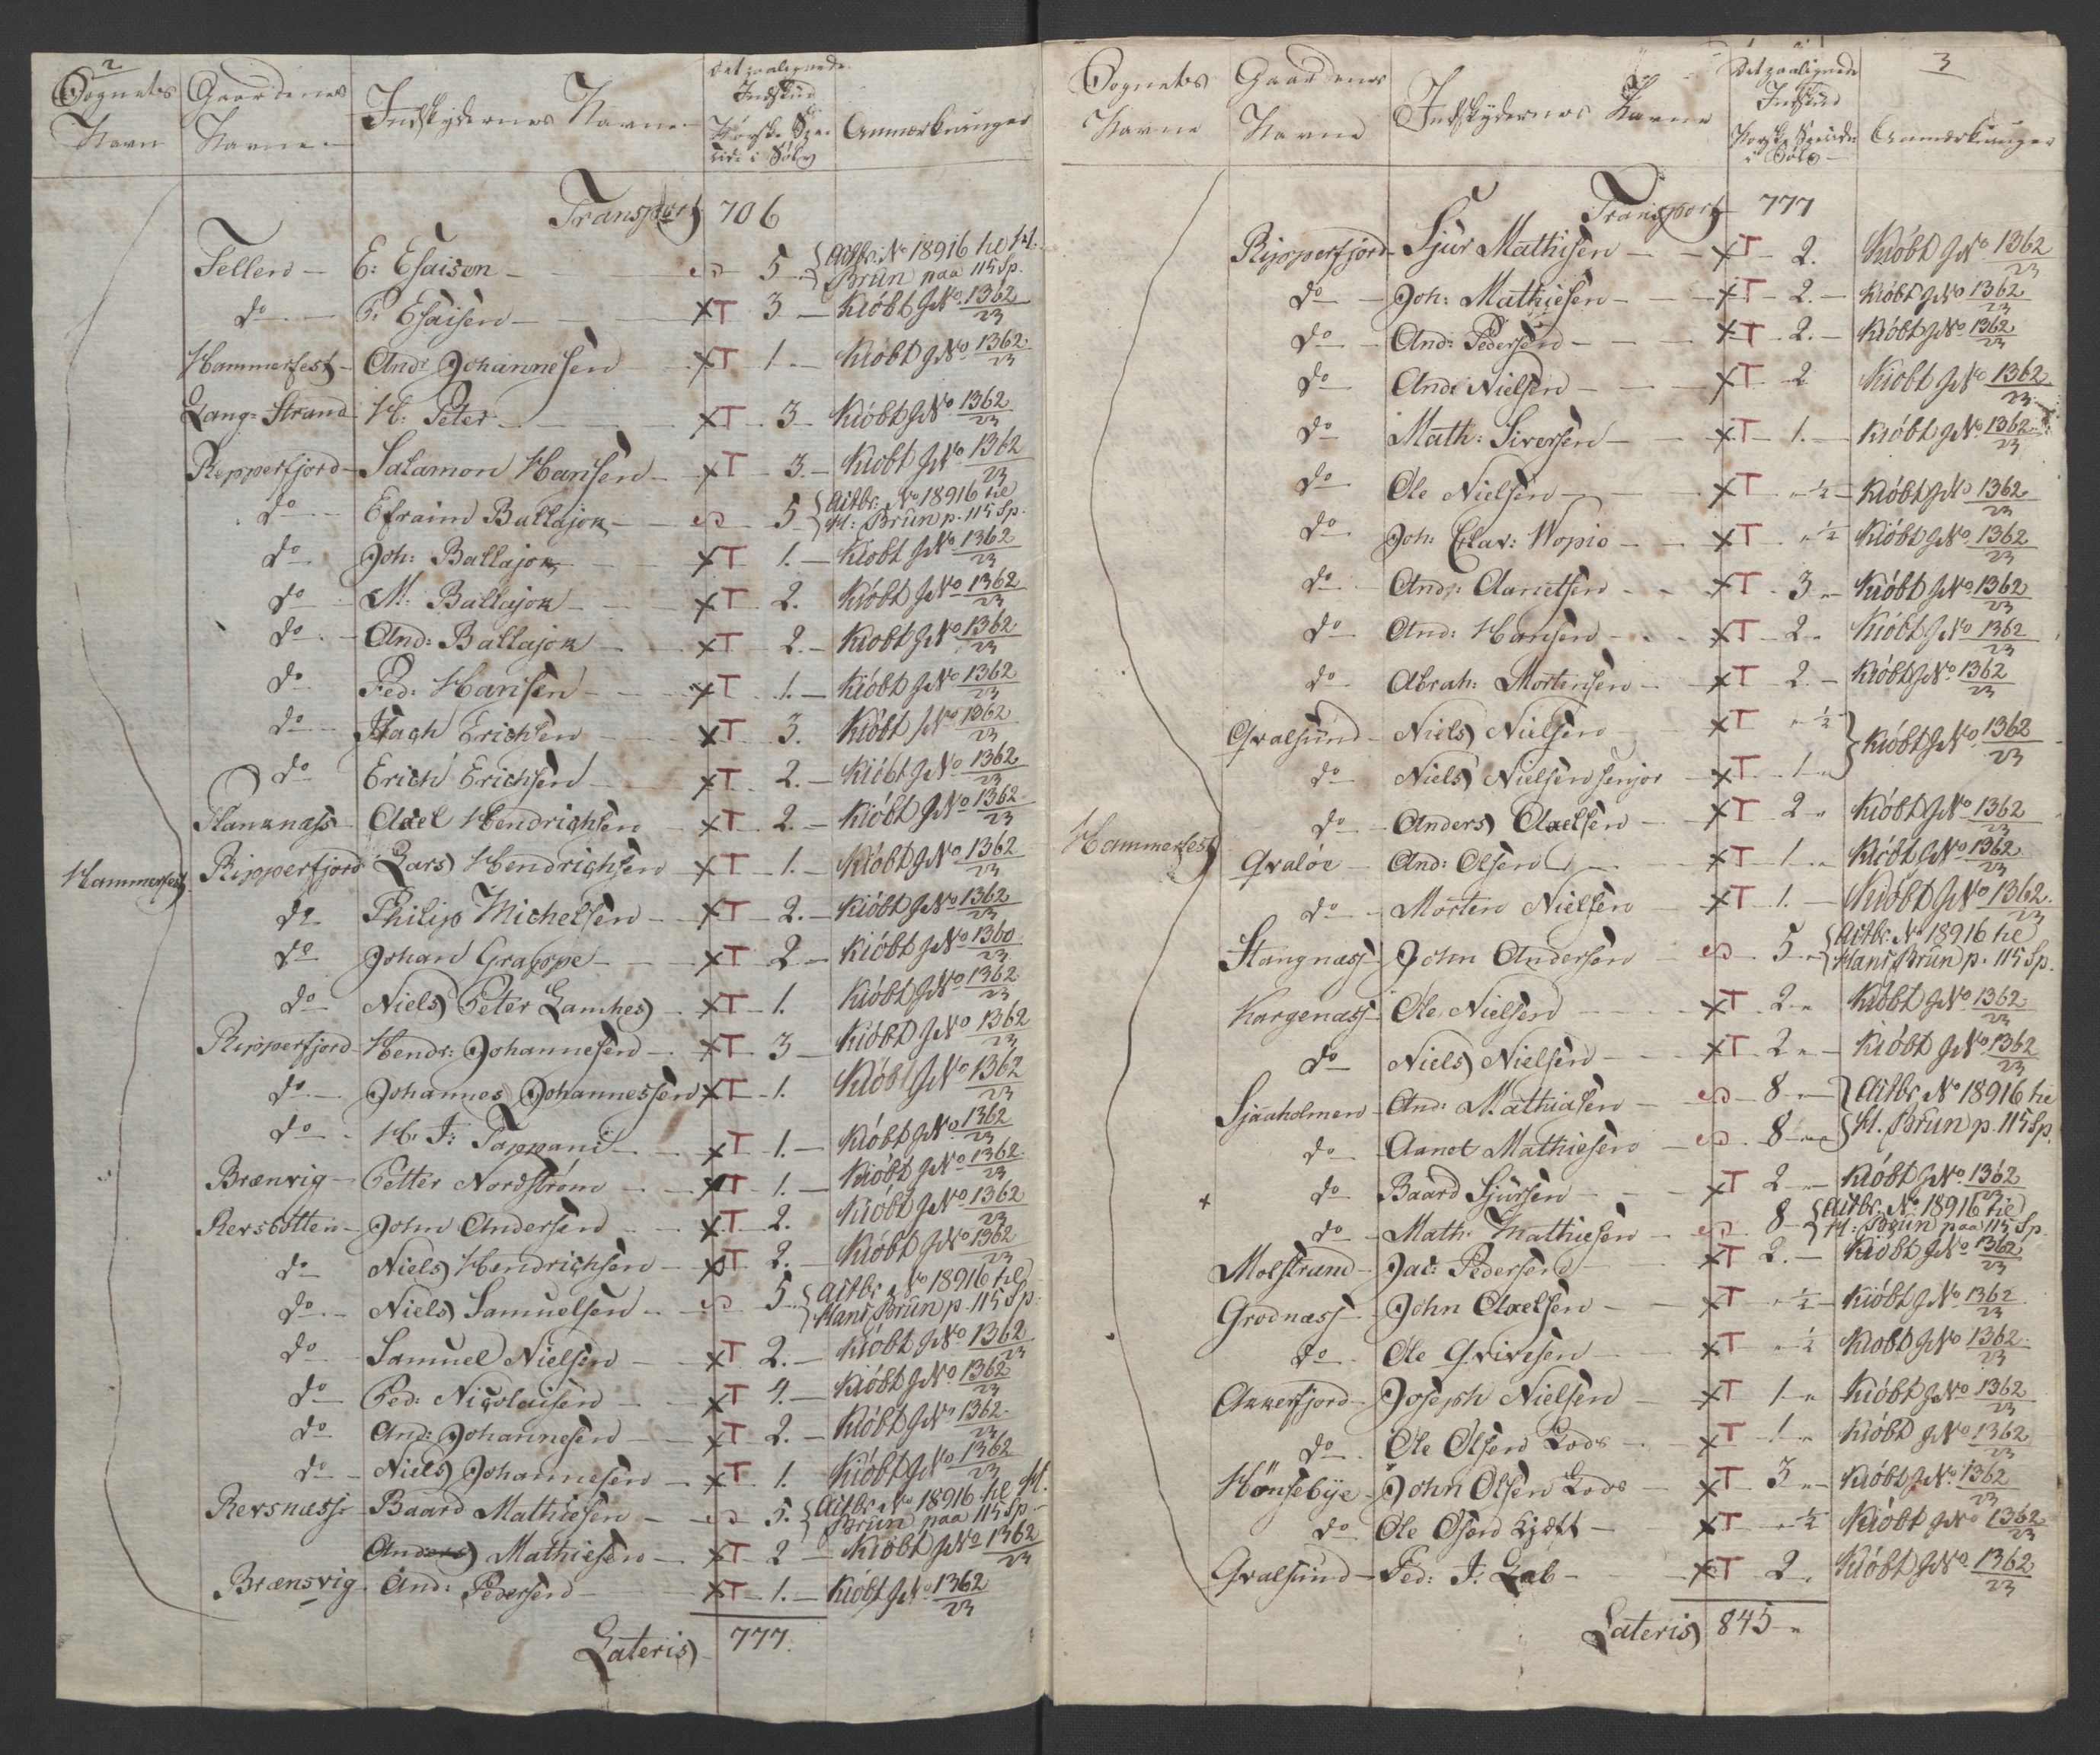 2
Sognets Navn | Gaardenes Navne | Indskydernes Navne | Det paalignede Indskud Norske Specier i Sølv | Anmærkninger
Transport 706
Fellen — E: Esaison — 5 {Actbr. No 18916 til H. Brun paa 115 Sp.
do — P: Esaisen — xT 3 — Kiöbt J No 1362/23
Hammerfest — And: Johannesen xT 1. — Kiöbt J No 1362/23
Lang=Strand H: Peter — xT 3 — Kiöbt J No 1362/23
Repperfjord — Salamon Hansen — xT 3 — Kiöbt J No 1362/23
do — Efraim Ballajok — 5 {Actbr. No 18916 til H: Brun p. 115 Sp.
do — Joh: Ballajok xT 1. — Kiöbt J No 1362/23
do — M: Ballajok — xT 2. Kiöbt J No 1362/23
do — And: Ballajok — xT 2. — Kiöbt J No 1362/23
do — Ped: Hansen — xT 1. — Kiöbt J No 1362/23
do — Erichsen — xT 3. Kiöbt J No 1362/23
do Erich Erichsen — xT 2. — Kiöbt J No 1362/23
Axel Hendrichsen xT 2. — Kiöbt J No 1362/23
Hammerfest
Ripperfjord Lars Hendrichsen xT 1. — Kiöbt J No 1362/23
do Philip Michelsen — xT 2. — Kiöbt J No 1362/23
do Johan Grappe — xT 2 — Kiöbt J No 1360/23
do — Niels Peter Lamhes — xT 1. Kiöbt J No 1362/23
Ripperfjord — Hendr: Johannesen — xT 3 — Kiöbt J No 1362/23
do — Johannes Johannessen xT 1. Kiöbt J No 1362/23
do — H. J: Tappani — xT 1. — Kiöbt J No 1362/23
Brænvig — Petter Nordström — xT 1. — Kiöbt J No 1362/23
Revsbotten — John Andersen — xT 2. Kiöbt J No 1362/23
do — Niels Hendrichsen — xT 2. — Kiöbt J No 1362/23
do — Niels Samuelsen — 5 {Actbr. No 18916 til Hans Brun p. 115 Sp.
do — Samuel Nielsen — xT 2. — Kiöbt J No 1362/23
do — Ped: Nicolaisen — xT 4. — Kiöbt J No 1362/23
do And: Johannesen — xT 2. — Kiöbt J No 1362/23
do — Niels Johannesen — xT 1. Kiöbt J No 1362/23
Revsnæss — Baard Mathiesen — 5. {Actbr. No 18916 til H. Brun paa 115 Sp.
Anders Mathiesen — xT 2 — Kiöbt J No 1362/23
Brænsvig — And: Pedersen — xT 1. — Kiöbt J No 1362/23
Lateris 777.
3
Sognets Navne | Gaardenes Navne | Indskydernes Navne | Det paalignede Indskud Norske Specier i Sølv | Anmærkninger
Transport 777
Ripperfjord — Sjur Mathisen — xT 2. Kiöbt J No 1362/23
do — Joh: Mathiesen — xT 2. — Kiöbt J No 1362/23
do — And: Pedersen — xT 2. — Kiöbt J No 1362/23
do And: Nielsen — xT 2 Kiöbt J No 1362/23
do Math: Siversen — xT 1. — Kiöbt J No 1362/23
do Ole Nielsen — xT „ ½ — Kiöbt J No 1362/23
do Joh: Clav: Wopio — xT „ ½ Kiöbt J No 1362/23
do — And: Aanetsen — xT 3 „ Kiöbt J No 1362/23
do And: Hansen — xT 2 „ Kiöbt J No 1362/23
do Abrah: Mortensen — xT 2 — Kiöbt J No 1362/23
Qvalsund — Niels Nielsen — xT „ ½ } Kiöbt J No 1362/23
do — Niels Nielsen senjor — xT 1 „
Hammerfest
do — Anders Axelsen — xT 2 „ Kiöbt J No 1362/23
Qvaløe — And: Olsen — xT 1 „ Kiöbt J No 1362/23
do — Morten Nielsen xT 1. — Kiöbt J No 1362/23
Stangnæss — John Andersen — 5 „ {Actbr. No 18916 til Hans Brun p. 115 Sp.
Kargenæss — Ole Nielsen — xT 2 „ Kiöbt J No 1362/23
do Niels Nielsen — xT 2 „ — Kiöbt J No 1362/23
Sjaaholmen — And: Mathiasen — 8 „ } Actbr. No 18916 til
do — Aanot Mathiesen — 8 „ } H. Brun p. 115 Sp.
+ do — Baard Sjursen — xT 2 „ Kiöbt J No 1362/23
do — Math: Mathiesen — 8 {Actbr. No 18916 til H: Brun paa 115 Sp.
Molstrand — Jac: Pedersen — xT 2. — Kiöbt J No 1362/23
Grodnæss — John Axelsen — xT „ ½ — Kiöbt J No 1362/23
do. Ole Qvivesen — xT „ ½ Kiöbt J No 1362/23
Akkerfjord — Joseph Nielsen — xT 1 „ Kiöbt J No 1362/23
do. Ole Olsen Lods — xT 1 „ Kiöbt J No 1362/23
Hönsebÿe — John Olsen Lods — xT 3 „ Kiöbt J No 1362/23
do Ole — xT „ ½ Kiöbt J No 1362/23
Qvalsund — Ped: J: Lab — xT 2. Kiöbt J No 1362/23
Lateris 845 „